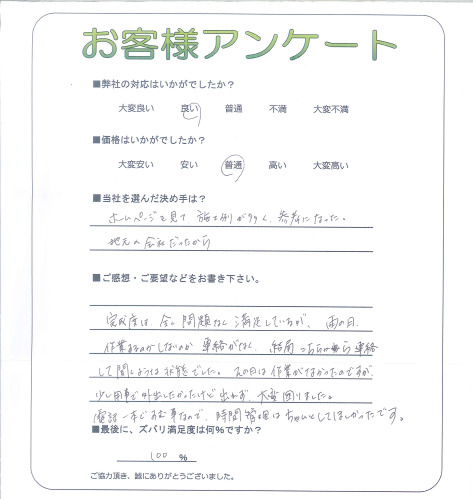 お客様アンケート
■弊社の対応はいかがでしたか？
大変良い 良い 普通 不満 大変不満
■価格はいかがでしたか？
大変安い 安い 普通 高い 大変高い
■当社を選んだ決め手は？
ホームページを見て 施工例が多く、参考になった。
地元の会社だったから
■ご感想・ご要望などをお書き下さい。
完成度は、全く問題なく満足していますが、雨の日、
作業するのかしないのか 連絡がなく、結局こちらから連絡
して聞くような状態でした。その日は作業がなかったのですが、
少し用事で外出したかったけど出れず、大変困りました。
電話一本で済む事なので、時間管理はちゃんとしてほしかったです。
■最後に、ズバリ満足度は何%ですか？
100 %
ご協力頂き、誠にありがとうございました。